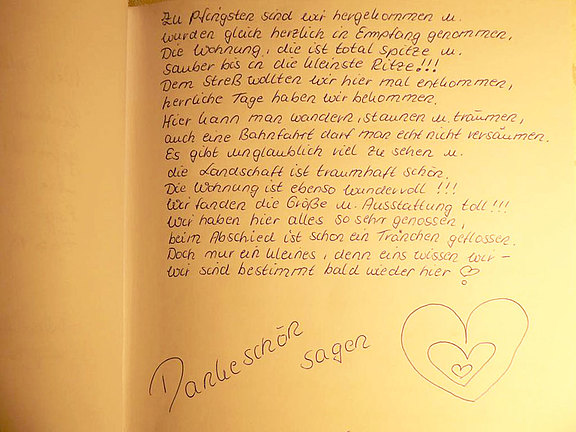 Zu Pfingsten sind wir hergekommen u.
wurden gleich herzlich in Empfang genommen,
Die Wohnung, die ist total spitze u.
sauber bis in die kleinste Ritze!!!
Dem Streß wollten wir hier mal entkommen,
herrliche Tage haben wir bekommen.
Hier kann man wandern, staunen u. träumen,
auch eine Bahnfahrt darf man echt nicht versäumen.
Es gibt unglaublich viel zu sehen u.
die Landschaft ist traumhaft schön.
Die Wohnung ist ebenso wundervoll !!!
Wir fanden die Größe u. Ausstattung toll!!!
Wir haben hier alles so sehr genossen,
beim Abschied ist schon ein Tränchen geflossen.
Doch nur ein kleines, denn eins wissen wir –
wir sind bestimmt bald wieder hier
Dankeschön
sagen